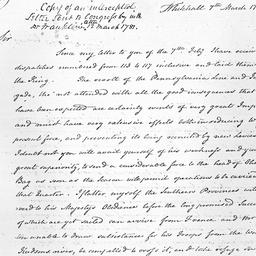 Copy of an intercepted
Letter sent to Congress by mth
Dr Franklin's 12th March 1781.
Whitehall 7th March 17
Sir
Since my letter to you of the 7th Feby I have receiv
dispatches numbered from 113 to 117 inclusive and laid them
the King. The revolt of the Pennsylvania Line and
gade, tho' not attended with all the good consequences that
have been expected are certainly events of very great Imp
and must have very extensive effects both in reducing the
present force, and preventing its being recruited by new Levies
I doubt not you will avail yourself of his weakness and your
great superiority, to send a considerable force to the head of Che
Bay as soon as the Season will permit operations to be carried
that direction. I flatter myself the Southern Provinces will
red to his Majestys Obedience before the long promised Succ
of which are yet sailed can arrive from France and
unable to draw subsistance for his Troops from the
Hudsons river, be compelled to cross it, and take refuge